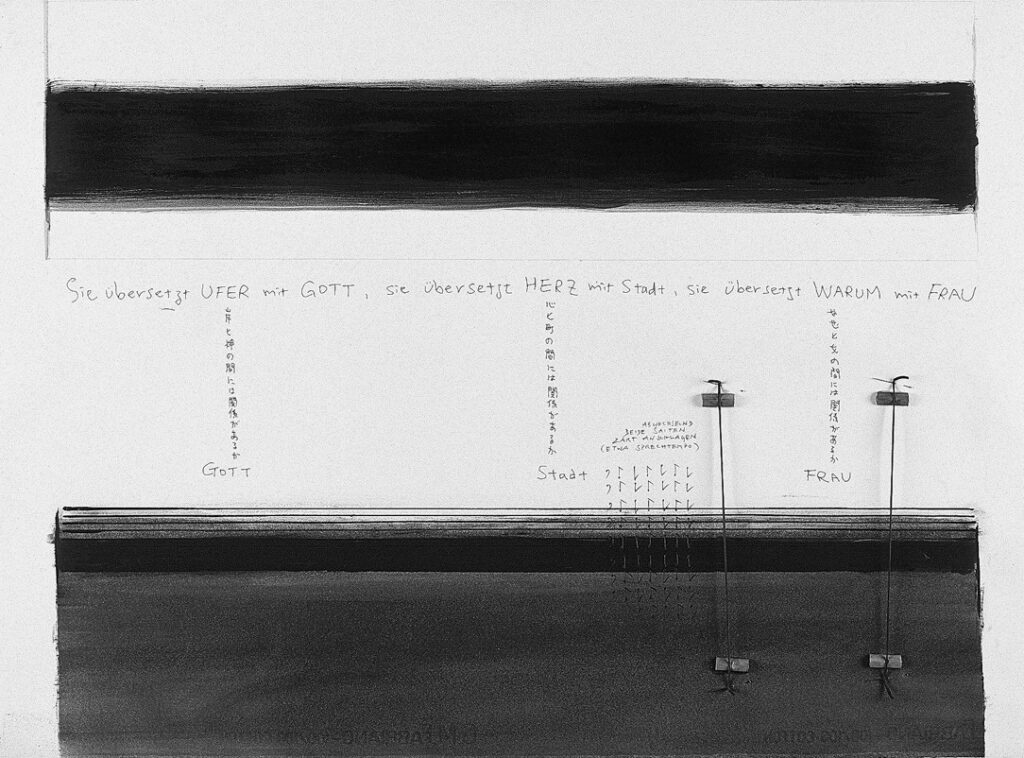 Sie übersetzt UFER mit GOTT, sie übersetzt HERZ mit Stadt, sie übersetzt WARUM mit FRAU
岸と神の間には関係があるか
心と町の間には関係があるか
なぜと女の間には関係があるか
ABWECHSELND
BEIDE SAITEN
ZART ANSCHLAGEN
(ETWA SPRECHTEMPO)
GOTT
Stadt
FRAU